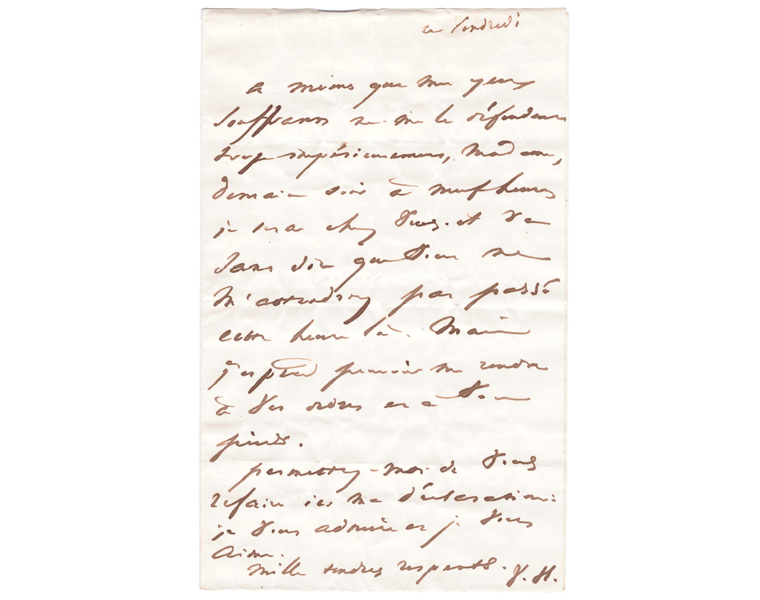 ce Vendredi
à moins que mes yeux
souffrans ne me le défendent
trop impérieusement, Madame,
demain soir à neuf heures
je serai chez vous. et va
sans dire que vous ne
m'attendrez pas passé
cette heure là. Mais
j'espère pouvoir me rendre
à vos ordres et à vos
pieds.
permettez-moi de vous
refaire ici ma déclaration:
je vous admire et je vous
aime.
Mille tendres respects. V. H.